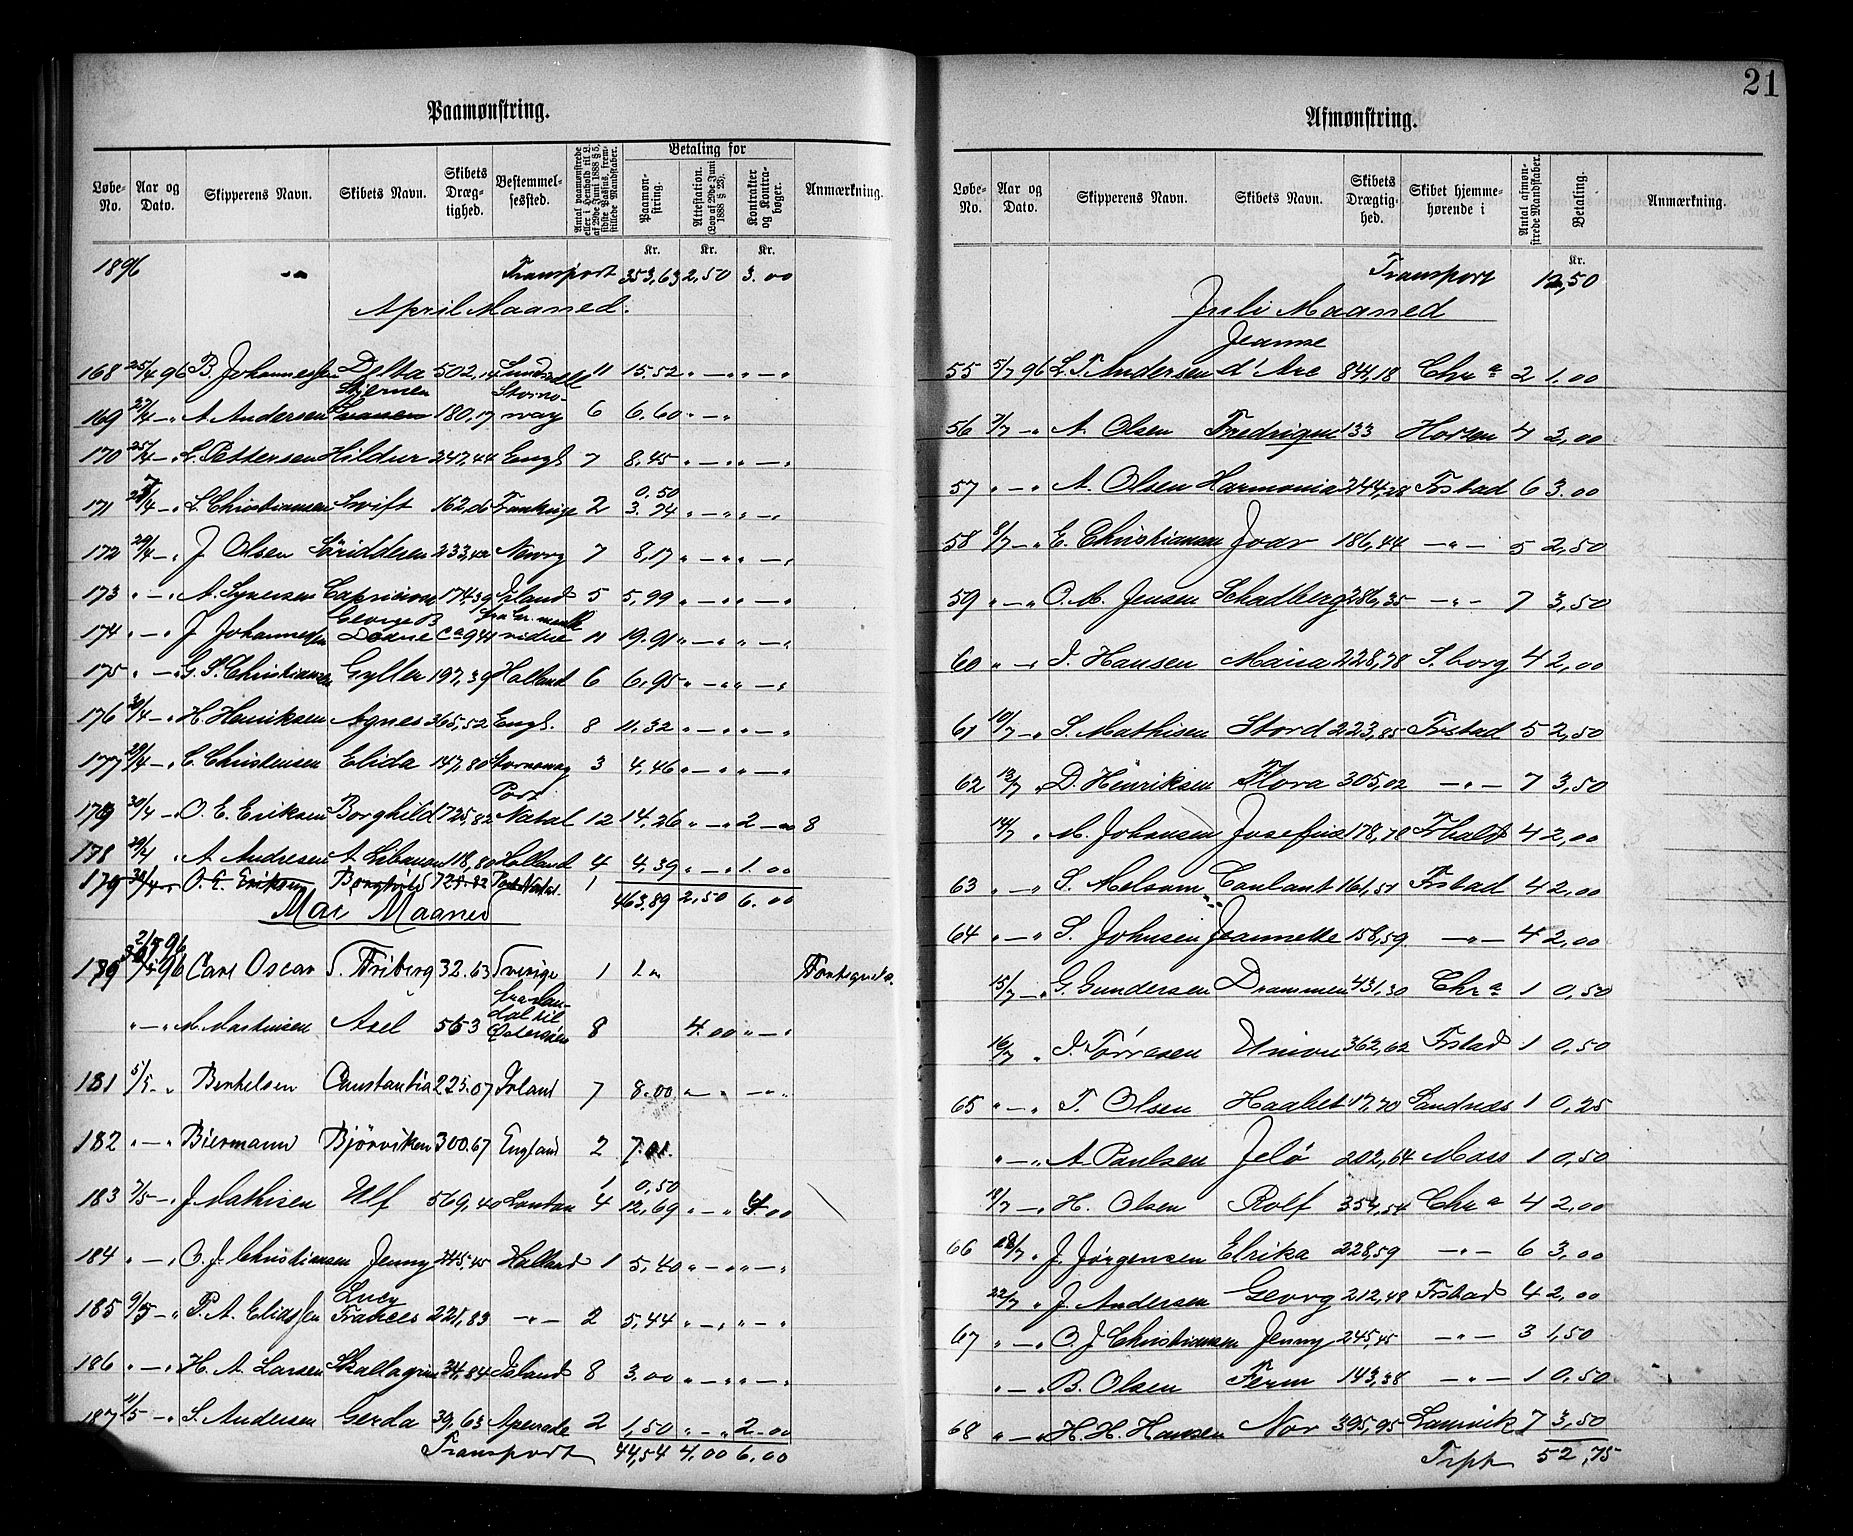 21
Paamønstring.
Løbe-No. Aar og Dato. Skipperens Navn. Skibets Navn. Skibets Drægtighed. Bestemmelsessted. Betaling for Paamønstring. Attestation. (Lov af 29de Juni 1888 § 23). Kontrakter og Kontrabøger. Anmærkning.
Kr. Kr. Kr.
1896 Transport 353,63 2,50 3.00
April Maaned.
168 25/4 96 B. Johannessen Delta 502,14 11 15.52 " — " " — "
Stjernen Storno-
169 27/4 - " A. Andersen 180,17 way 6 6.60 " — "
170 25/4 - " L. Pettersen Hildur 247,44 Engl 7 8,45 " — " " — "
0,50
171 /4 - " L. Christiansen Swift 162,06 2 3.74 " — " " — "
172 29/4 - " J Olsen 233,42 Norrg 7 8,17 " — " " — "
173 " — " A. Syversen Capricorn 174,39 Irland 5 5,99 " — " " — "
George B
174 " — " J Johannessen Doane Ca 941 vidre 11 19.91 " — " " — "
175 " — " G. S. Christiansen Gyller 197,39 Holland 6 6,95 " — " " — "
176 30/4 - " H. Henriksen Agnes 365,52 Engl. 8 11,32 " — " " — "
177 29/4 - " C. Christensen Elida 147,80 Stornoway 3 4,46 " — " " — "
Port
179 30/4 - " O. E. Eriksen Borghild 725,82 Natal 12 14,26 " — " 2 — " 8
178 29/4 " A Andresen A Libanon 118,80 Holland 4 4,39 " — " 1.00
179 30/4 - " O. E. Eriksen Borghild 725.82 Port Natal. 1
463.89 2,50 6.00
Mai Maaned
2/5 96
96 Carl Oscar T. Friberg 32.63 Sverige 1 1 "
fra
dal til
" — " M. Martinsen Axel 563 Østersøen 8 4.00 " — "
181 5/5 - " Berthelsen Constantia 225.07 Irland 7 8.00 " — " — " "
182 " — " Biermann Bjørviken 300.67 England 2 7.01.
1 0,50
183 7/5 - " J. Mathisen Ulf 569,40 London 4 12,69 " — " 4.00
184 " — " O. J. Christiansen Jenny 245,45 Holland 1 5,40 " — " " — "
Lucy
185 9/5 - " P. A. Eliassen Frances 221,83 — " — 2 5,44 " — " " — "
186 " — " H. A. Larsen Skallagrim 34,84 Island 8 3.00 " — " " — "
187 11/5 - " S. Andersen Gerda 39,63 Apenrade 2 1,50 " — " 2.00
Transport 44,54 4.00 6.00
Afmønstring.
Løbe-No. Aar og Dato. Skipperens Navn. Skibets Navn. Skibets Drægtighed. Skibet hjemmehørende i Antal afmønstrede Mandskaber. Betaling. Anmærkning.
Kr.
Transport 12,50
Juli Maaned
Jeanne
55 5/7 96 L. T. Andersen d' Arc 844,18 Chr a 2 1.00
56 7/7 - " A. Olsen Fredrigen 133 Horsen 4 2,00
57 " — " A. Olsen Harmonia 244,28 Frstad 6 3.00
58 8/7 - " E. Christiansen Joar 186,44 — " — 5 2,50
59 " — " O. M. Jensen Schadberg 286,35 — " — 7 3,50
60 " — " J. Hansen Maria 228,78 S.borg 4 2,00
61 10/7 - " S. Mathisen Stord 223,85 Frstad 5 2,50
62 13/7 - " D. Henriksen Flora 305,02 — " — 7 3,50
14/7 " M. Johansen Josefine 178,78 Frhald 4 2,00
63 " — " S. Melsom Caulant 161,51 Frstad 4 2,00
64 " — " S. Johnsen Jeannette 158,59 — " — 4 2,00
15/7 - " G. Gundersen Drammen 431,30 Chr a 1 0,50
16/7 " J. Tørresen Union 362,62 Frstad 1 0,50
65 " — " T. Olsen Haabet 17,70 Sandnæs 1 0,25
" — " A. Paulsen Jelø 202,64 Moss 1 0,50
18/7 - " H. Olsen Rolf 354,54 Chr a 4 2,00
66 28/7 " J. Jørgensen Elrika 228,59 — " — 6 3,00
22/7 " J. Andersen Georg 212,48 Frstad 4 2,00
67 " — " O. J. Christiansen Jenny 245,45 — " — 3 1,50
" — " B. Olsen Ferm 143,38 — " — 1 0,50
68 " — " H. H. Hansen Nor 395,95 Laurvik 7 3,50
Trpt 52,75